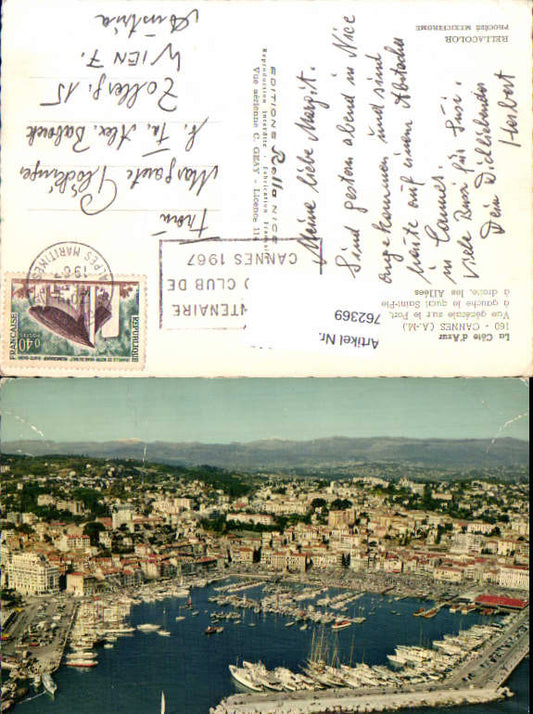 La Côte d'Azur
163 - CANNES (A.-M.)
Vue générale sur le Port,
à gauche le quai Saint-Pierre
à droite, les Allées
RELLACOLOR
PROCÉDÉ MEXICHROME
Meine liebe Margit.
Sind gestern abend in Nice
angekommen und sind
heute auf einem Abstecher
in Cannes.
Viele Bussi für Susi.
Dein Dichliebender
Herbert
EDITIONS Rella NICE
Reproduction Interdite - Fabrication
Vue aérienne C. GEAY - Licence
CANNES 1967
CLUB DE
ALPES MARITIMES
RÉPUBLIQUE
FRANÇAISE
0,40
POSTES
Frau
Margarete
b. Fa. Alex.
Zollerg. 15
WIEN 7.
Austria
Artikel Nr.
762369